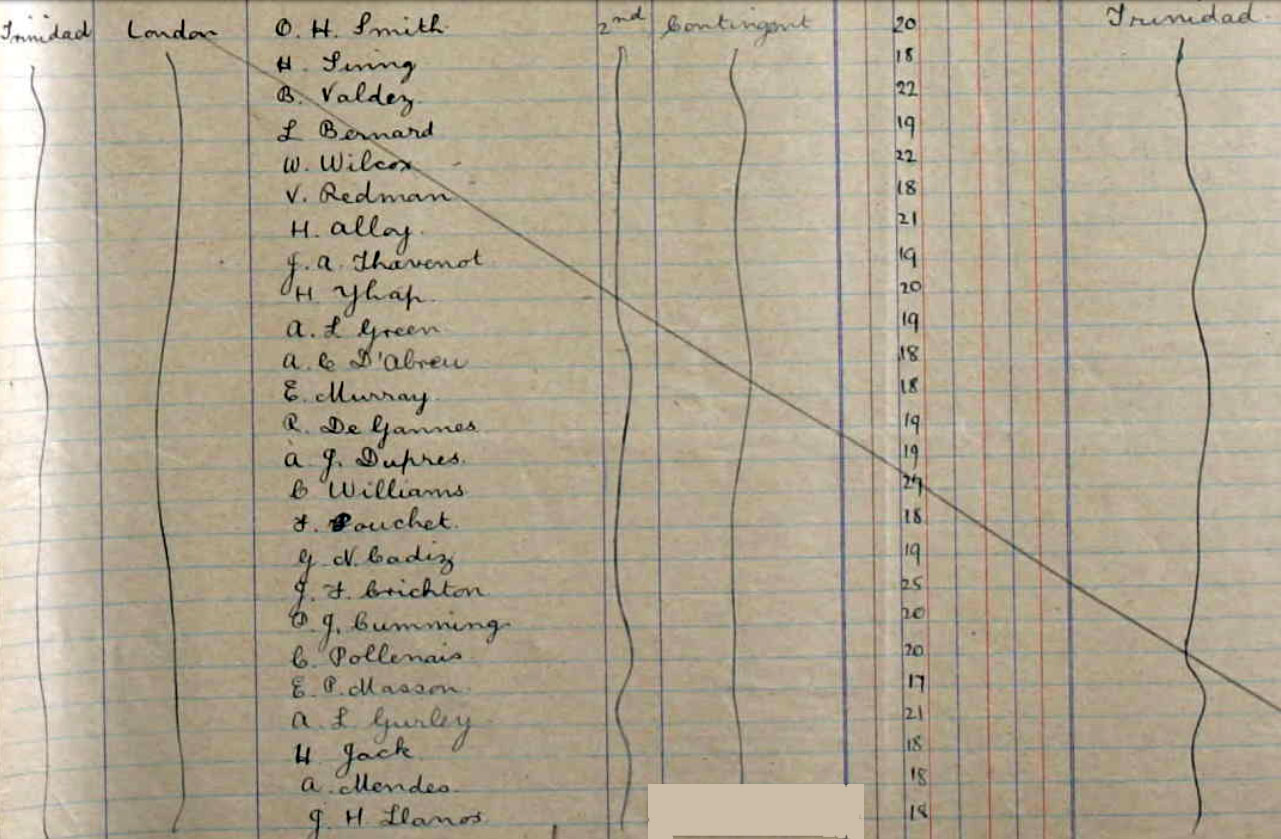 Trinidad London O. H. Smith 2nd Contingent 20 Trinidad
H. Sinng 18
B. Valdez 22
L Bernard 19
W. Wilcox 22
V. Redman 18
H. Alloy. 21
J. A. Thavenot 19
H Yhap. 20
A. L Green 19
A. C D'Abreu 18
E. Murray. 18
R. De Gannes 19
A J. Dupres. 19
C Williams 29
F. Pouchet. 18
G N. Cadiz 19
J. F. Crichton 25
O. J. Cumming 20
C. Pollenais 20
E. P. Masson. 17
A L Gurley 21
H Jack. 18
A. Mendes. 18
J. H. Llanos. 18